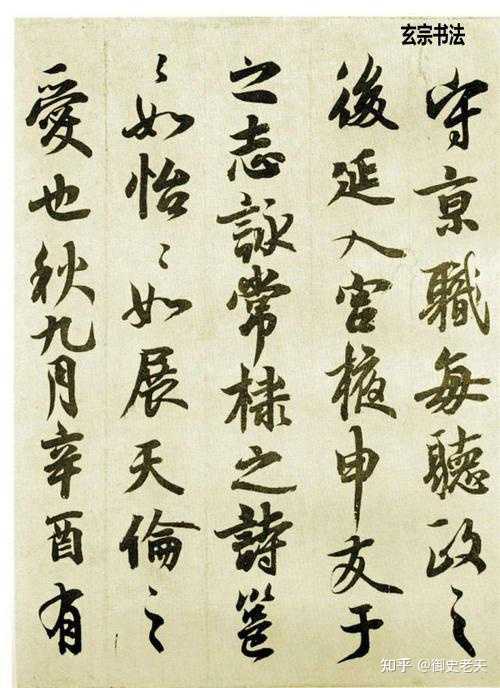 玄宗书法
守京職每聽政之
後延入宮掖申友于
之志詠常棣之詩邕
〻如怡〻如展天倫之
愛也秋九月辛酉有
知乎 @御史老天